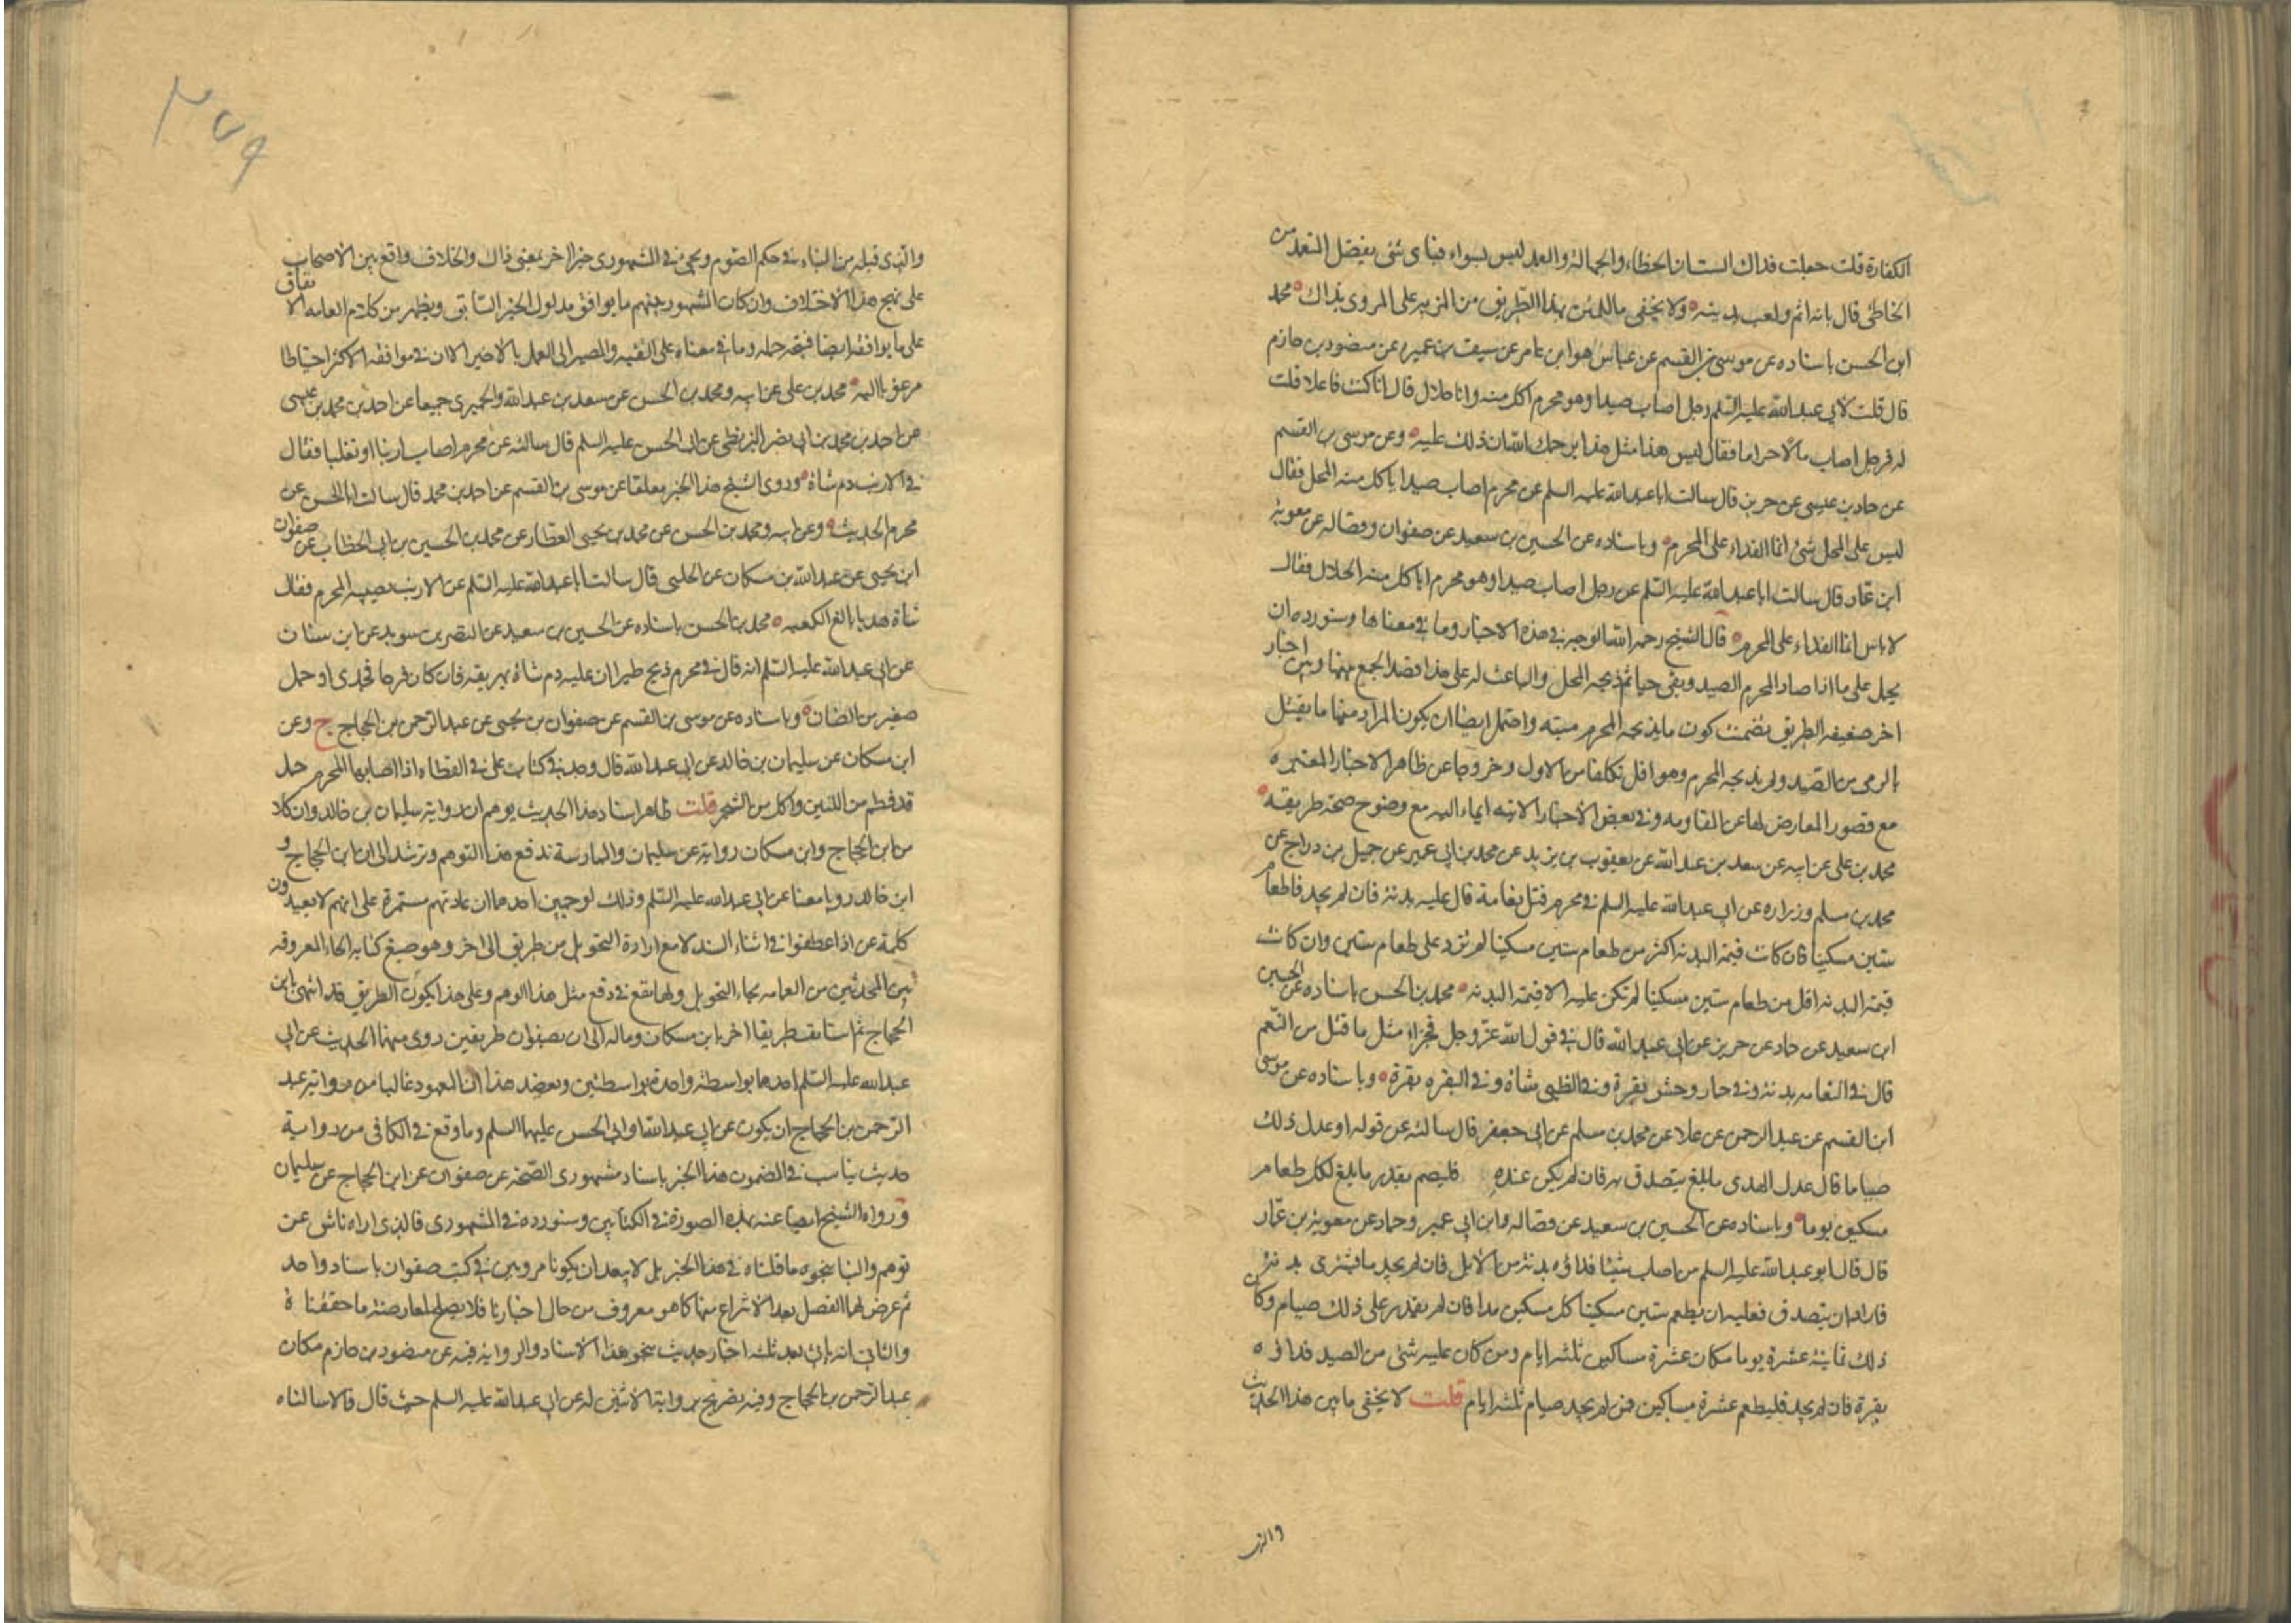 الكفارة قلت جعلت فداك الستان الخطاء والجهالة والعمد ليس بسواء فباى شئ يفضل المتعمد من
الخاطئ قال بانه اثم ولعب بدينه ولا يخفى ما للمتن بهذا الطريق من المزيه على المروى بذاك محمد
ابن الحسن باسناده عن موسى بن القسم عن عباس هو ابن عامر عن سيف بن عميره عن منصور بن حازم
قال قلت لابى عبد الله عليه السلم رجل اصاب صيدا وهو محرم اكل منه وانا حلال قال انا كنت فاعلا قلت
له فرجل اصاب مالا حراما فقال ليس هذا مثل هذا يرحمك الله ان ذلك عليه وعن موسى بن القسم
عن حماد بن عيسى عن حريز قال سالت ابا عبد الله عليه السلم عن محرم اصاب صيدا اياكل منه المحل فقال
ليس على المحل شئ انما الفداء على المحرم وباسناده عن الحسين بن سعيد عن صفوان وفضاله عن معوية
ابن عمار قال سالت ابا عبد الله عليه السلم عن رجل اصاب صيدا وهو محرم اياكل منه الحلال فقال
لا باس انما الفداء على المحرم قال الشيخ رحمه الله الوجه فى هذه الاخبار وما فى معناها وسنورده ان
يحمل على ما اذا صاد المحرم الصيد وبقى حيا ثم ذبحه المحل والباعث له على هذا قصد الجمع بينها وبين اخبار
اخر ضعيفه الطريق تضمنت كون ما يذبحه المحرم ميته واحتمل ايضا ان يكون المراد منها ما يقتل
بالرمى من الصيد ولم يذبحه المحرم وهو اقل تكلفا من الاول وخروجا عن ظاهر الاخبار المعتبره
مع قصور المعارض لها عن المقاومه وفى بعض الاخبار الاتيه ايماء اليه مع وضوح صحة طريقه
محمد بن على عن ابيه عن سعد بن عبد الله عن يعقوب بن يزيد عن محمد بن ابى عمير عن جميل بن دراج عن
محمد بن مسلم وزراره عن ابى عبد الله عليه السلم فى محرم قتل نعامة قال عليه بدنة فان لم يجد فاطعام
ستين مسكينا فان كانت قيمة البدنه اكثر من طعام ستين مسكينا لم يزد على طعام ستين وان كانت
قيمة البدنه اقل من طعام ستين مسكينا لم يكن عليه الا قيمة البدنه محمد بن الحسن باسناده عن الحسين
ابن سعيد عن حماد عن حريز عن ابى عبد الله قال فى قول الله عز وجل فجزاء مثل ما قتل من النعم
قال فى النعامه بدنة وفى حمار وحش بقرة وفى الظبى شاة وفى البقره بقرة وباسناده عن موسى
ابن القسم عن عبد الرحمن عن علا عن محمد بن مسلم عن ابى جعفر قال سالته عن قوله او عدل ذلك
صياما قال عدل الهدى ما بلغ يتصدق به فان لم يكن عنده فليصم بقدر ما بلغ لكل طعام
مسكين يوما وباسناده عن الحسين بن سعيد عن فضاله وابن ابى عمير وحماد عن معوية بن عمار
قال قال ابو عبد الله عليه السلم من اصاب شيئا فداؤه بدنة من الابل فان لم يجد ما يشترى بدنة
فاراد ان يتصدق فعليه ان يطعم ستين مسكينا كل مسكين مدا فان لم يقدر على ذلك صام مكان
ذلك ثمانية عشرة يوما مكان عشرة مساكين ثلثه ايام ومن كان عليه شئ من الصيد فداؤه
بقرة فان لم يجد فليطعم عشرة مساكين فمن لم يجد صيام ثلثه ايام قلت لا يخفى ما بين هذا الحديث
والذى
والذى قبله من التنا فى حكم الصوم ويجئ فى المشهورى خبر اخر بمعنى ذاك والخلاف واقع بين الاصحاب
على نهج هذا الاختلاف وان كان المشهور بينهم ما يوافق مدلول الخبر السابق ويظهر من كلام العامه الاتفاق
على ما يوافقه ايضا فيتجه حمله وما فى معناه على التقيه والمصير الى العمل بالاخير الا ان فى موافقه الاكثر احتياطا
مرغوبا اليه محمد بن على عن ابيه ومحمد بن الحسن عن سعد بن عبد الله والحميرى جميعا عن احمد بن محمد بن عيسى
عن احمد بن محمد بن ابى نصر البزنطى عن ابى الحسن عليه السلم قال سالته عن محرم اصاب ارنبا او ثعلبا فقال
فى الارنب دم شاة وروى الشيخ هذا الخبر معلقا عن موسى بن القسم عن احمد بن محمد قال سالت ابا الحسن عن
محرم الحديث وعن ابيه ومحمد بن الحسن عن محمد بن يحيى العطار عن محمد بن الحسين بن ابى الخطاب عن صفوان
ابن يحيى عن عبد الله بن مسكان عن الحلبى قال سالت ابا عبد الله عليه السلم عن الارنب يصيبه المحرم فقال
شاة هديا بالغ الكعبه محمد بن الحسن باسناده عن الحسين بن سعيد عن النضر بن سويد عن ابن سنان
عن ابى عبد الله عليه السلم انه قال فى محرم ذبح طيرا ان عليه دم شاة يهريقه فان كان فرخا فجدى او حمل
صغير من الضان وباسناده عن موسى بن القسم عن صفوان بن يحيى عن عبد الرحمن بن الحجاج ح وعن
ابن مسكان عن سليمان بن خالد عن ابى عبد الله قال وجدنا فى كتاب على فى القطاه اذا اصابها المحرم حمل
قد فطم من اللبن واكل من الشجر قلت ظاهر اسناد هذا الحديث يوهم ان رواية سليمان بن خالد وان كان
من ابن الحجاج وابن مسكان رواية عن سليمان والممارسة تدفع هذا التوهم وترشد الى ان ابن الحجاج و
ابن خالد رويا معنا عن ابى عبد الله عليه السلم وذلك لوجهين احدهما ان عادتهم مستمرة على انهم لا يعيدون
كلمة عن اذا عطفوا فى اثناء السند لا مع ارادة التحويل من طريق الى اخر وهو صيغ كتابه الحاء المعروفه
بين المحدثين من العامه بحاء التحويل ولها نفع فى دفع مثل هذا الوهم وعلى هذا يكون الطريق قد انتهى بابن
الحجاج ثم استانف طريقا اخر بابن مسكان وماله الى ان بصفوان طريقين روى منهما الحديث عن ابى
عبد الله عليه السلم احدهما بواسطة واحدة بواسطتين ويعضد هذا ان المعهود غالبا من رواية عبد
الرحمن بن الحجاج ان يكون عن ابى عبد الله او ابى الحسن عليهما السلم وما وقع فى الكافى من رواية
حديث يناسب فى المضمون هذا الخبر باسناد مشهورى الصحة عن صفوان عن ابن الحجاج عن سليمان
ورواه الشيخ ايضا عنه بهذه الصورة فى الكتابين وسنورده فى المشهورى فالذى اراه ناش عن
توهم والتباس بنحو ما قلناه فى هذا الخبر بل لا يبعد ان يكونا مرويين فى كتب صفوان باسناد واحد
ثم عرض لهما الفصل بعد الانتزاع منها كما هو معروف من حال اخبارنا فلا يصلح لمعارضة ما حققناه
والثانى انه ياتى بعد ثلثه اخبار حديث بنحو هذا الاسناد والرواية فيه عن منصور بن حازم مكان
عبد الرحمن بن الحجاج وفيه تصريح برواية الاثنين له عن ابى عبد الله عليه السلم حيث قال قالا سالناه